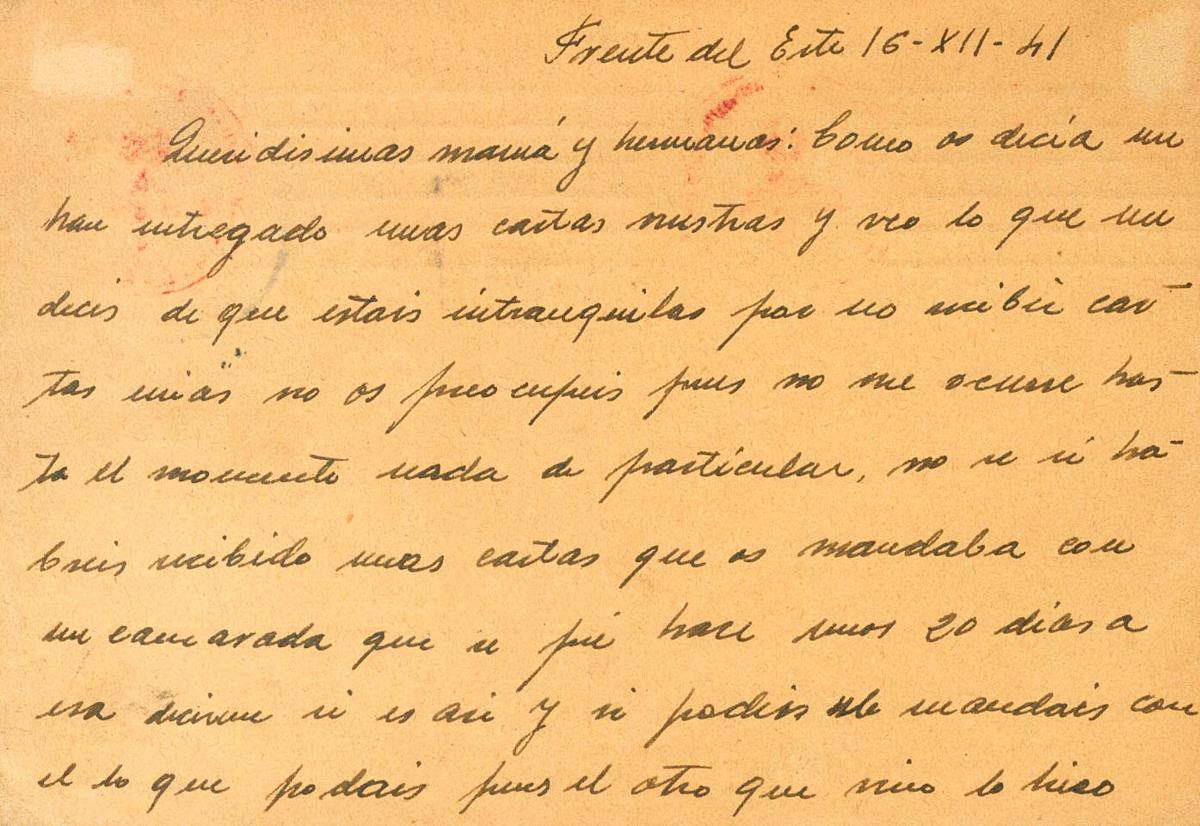 Frente del Este 16-XII-41
Queridisimas mamá y hermanas: Como os decía me
han entregado unas cartas vuestras y veo lo que me
decis de que estais intranquilas por no recibir car-
tas mias no os preocupeis pues no me ocurre has-
ta el momento nada de particular, no se si ha-
breis recibido unas cartas que os mandaba con
un camarada que se fué hace unos 20 dias a
esa decirme si es asi y si podeis mandais con
el lo que podais pues el otro que vino lo hizo